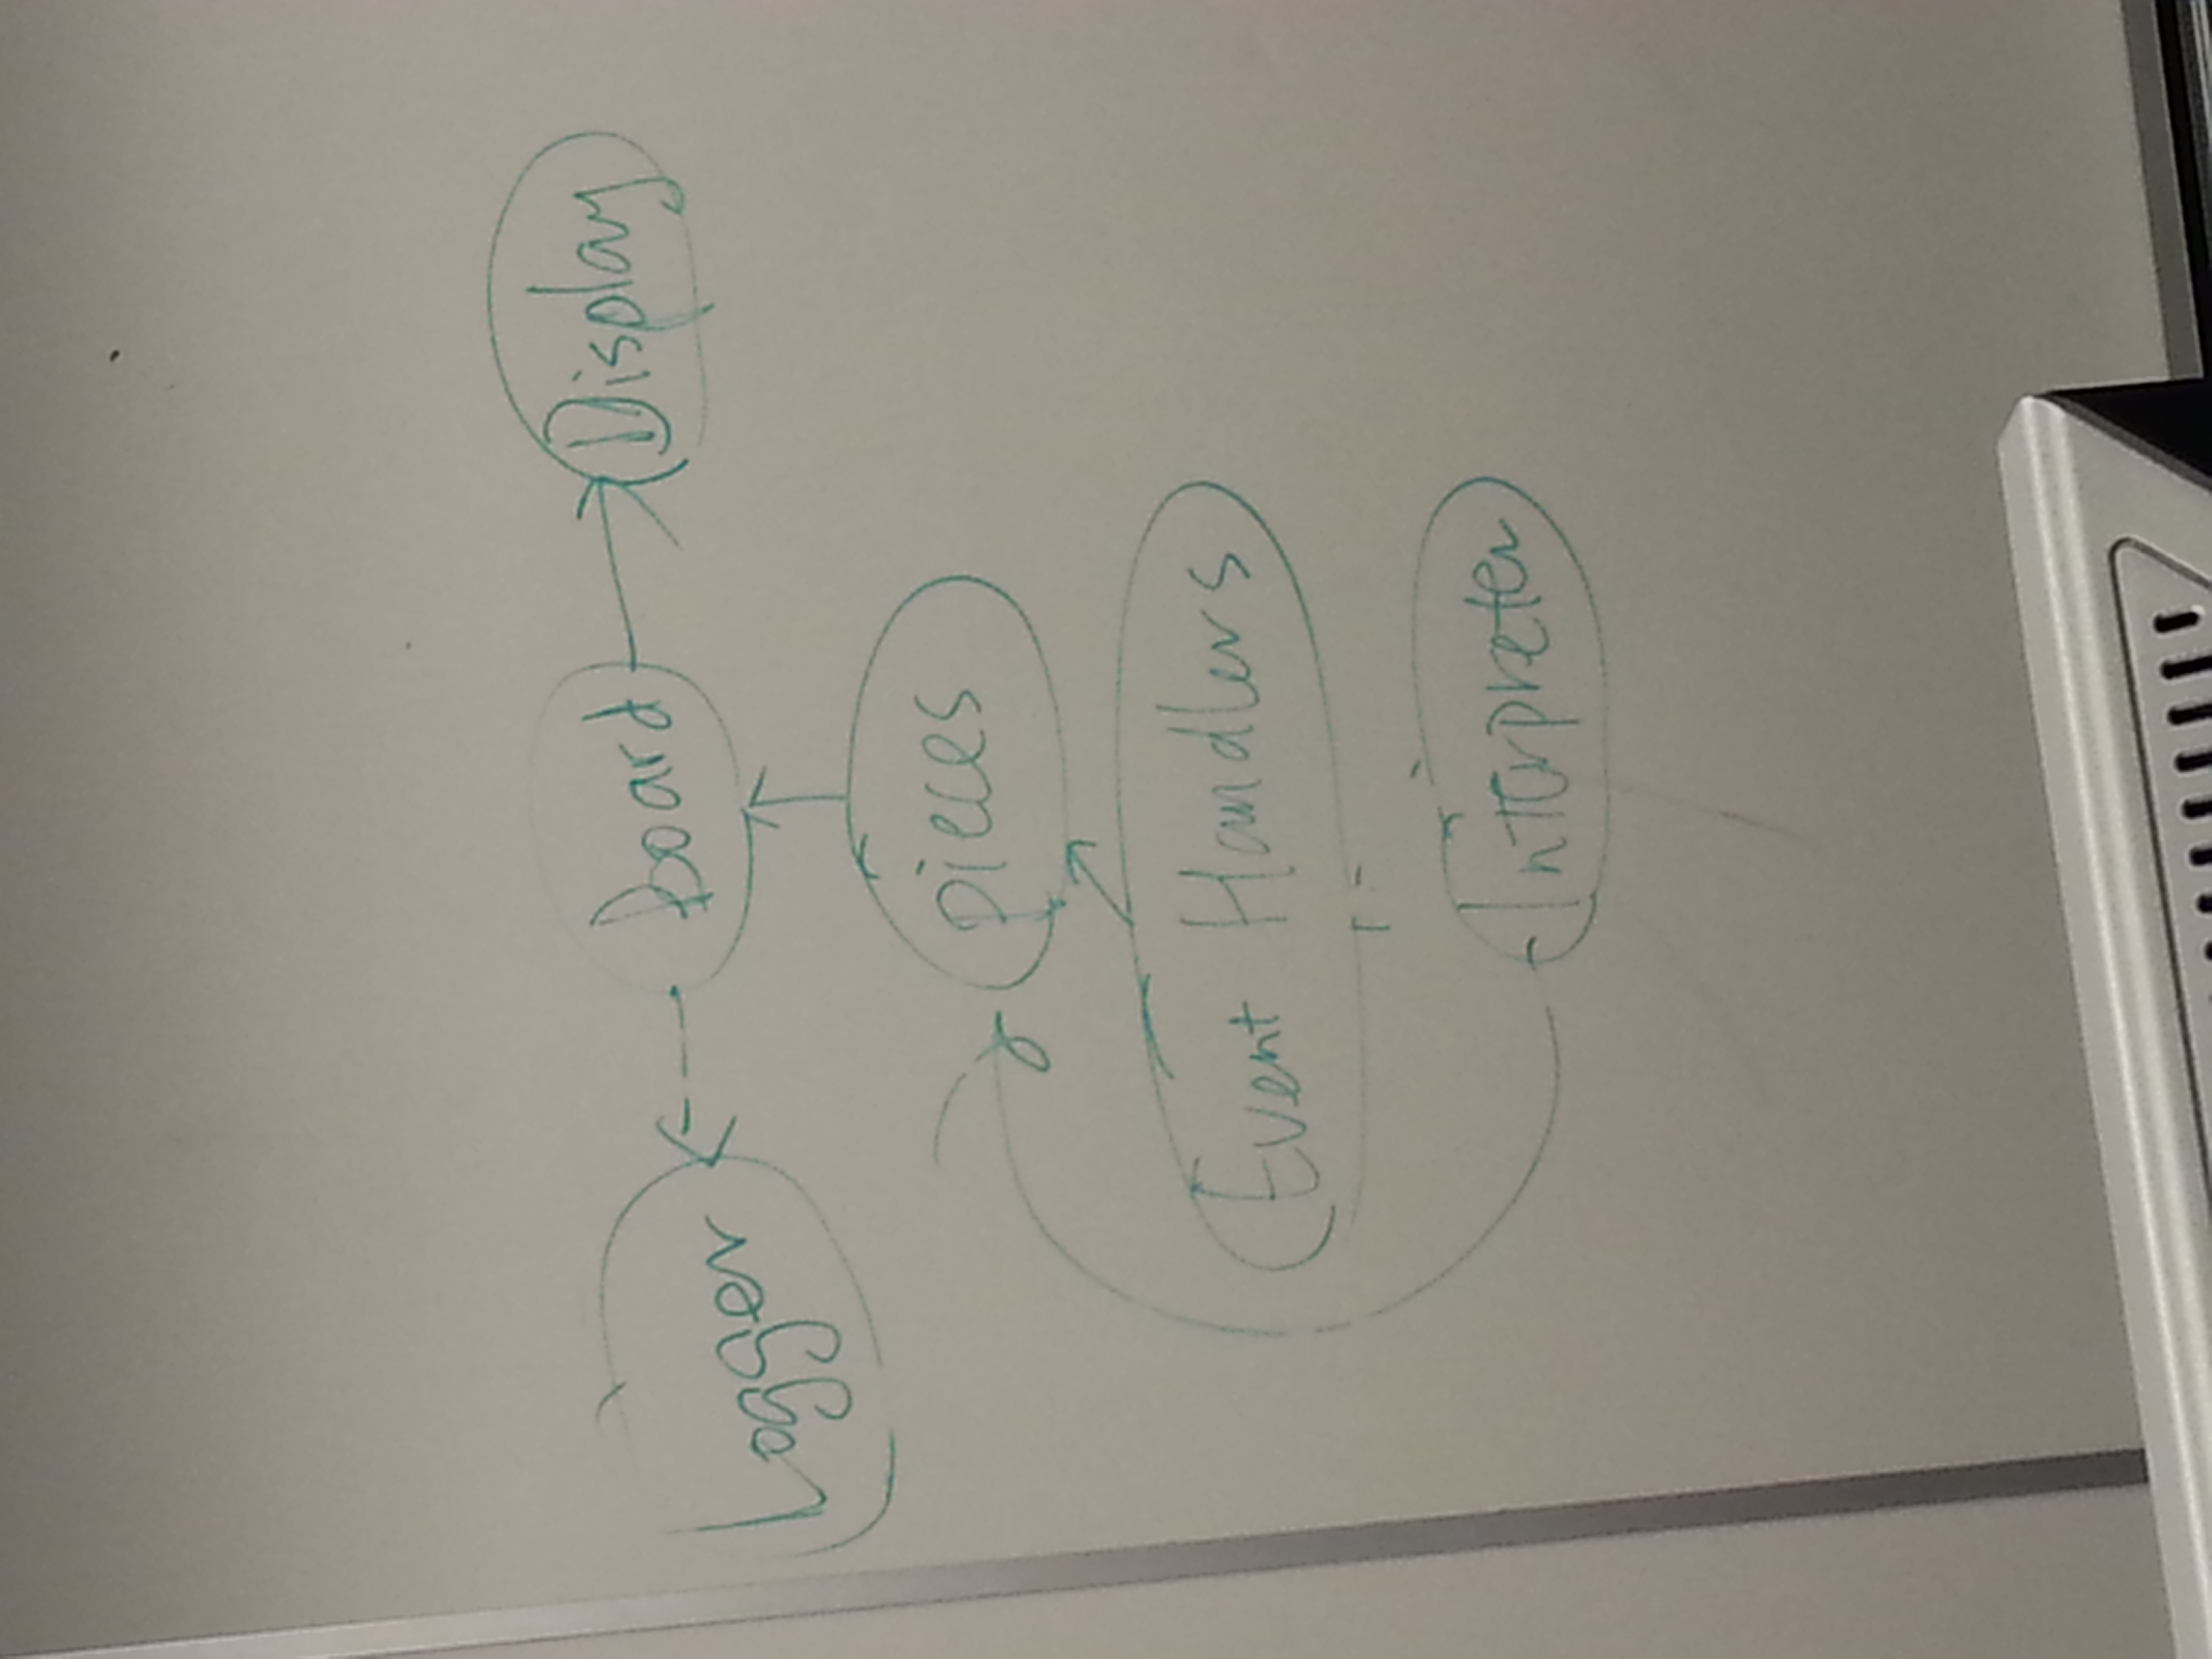 Logger
Board
Display
pieces
Event Handlers
Interpreter